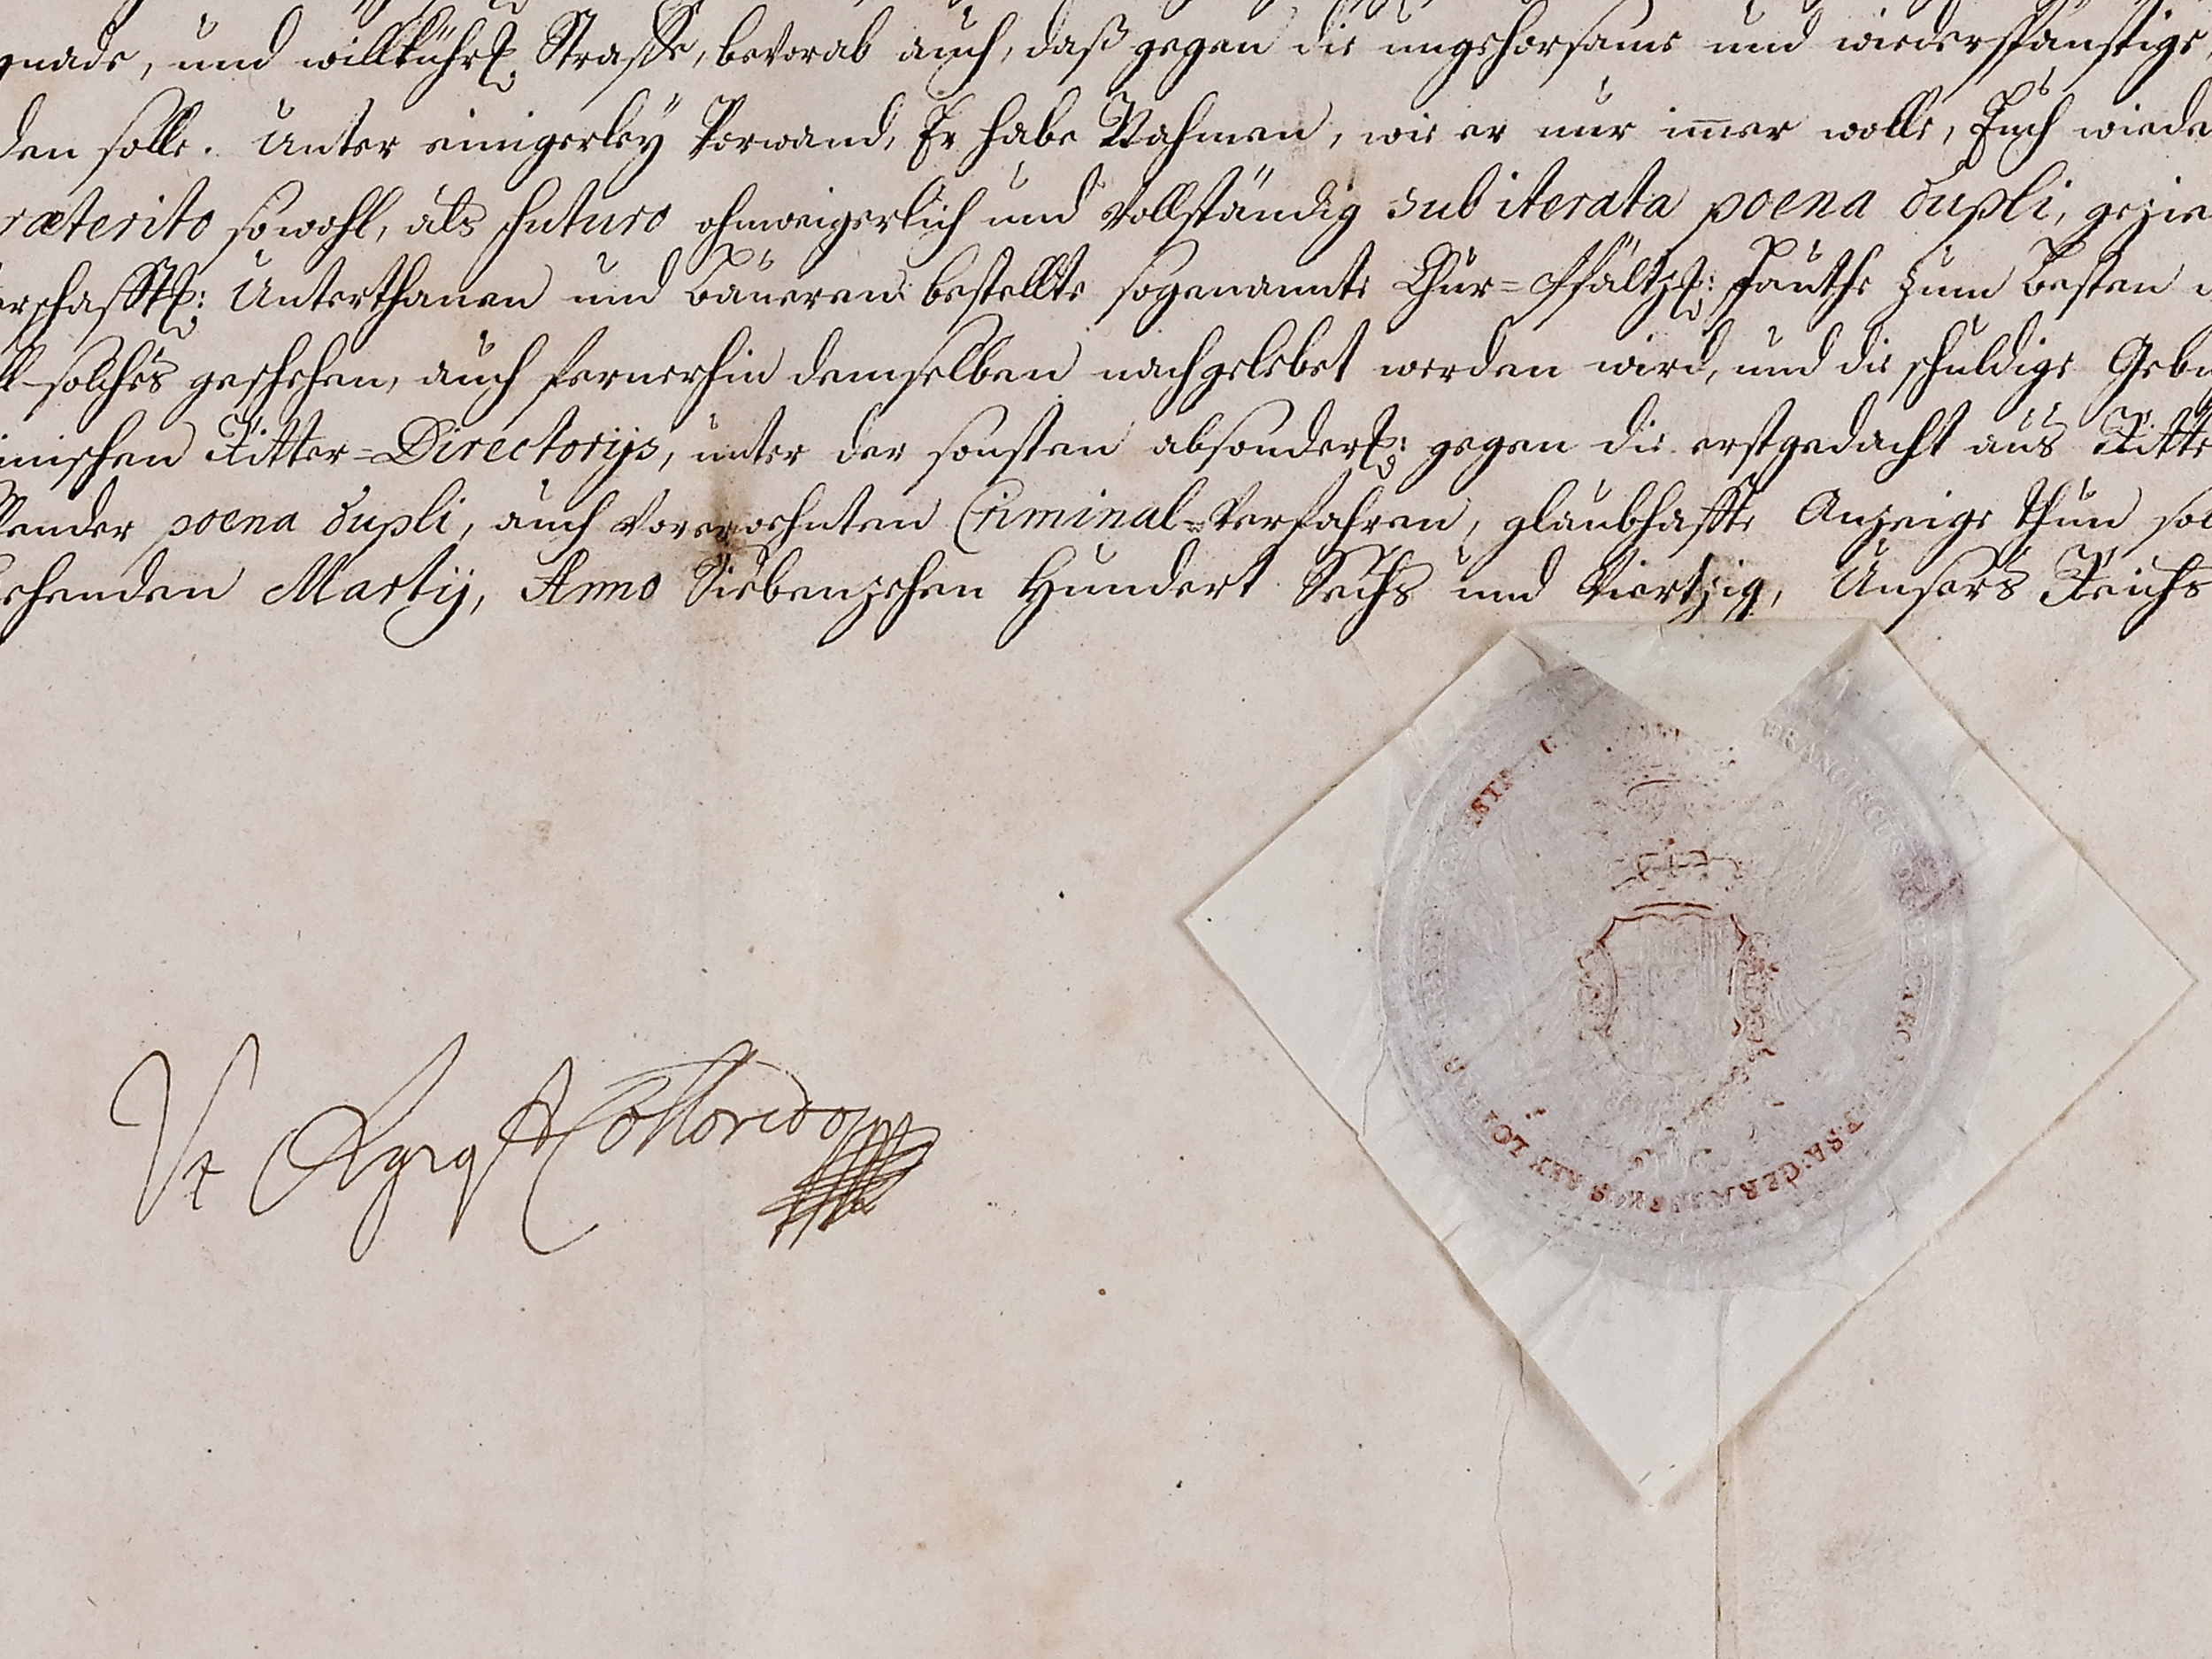 gnade, und willkührl. Straffe, bevorab auch, daß gegen die ungehorsame und wiederspänstige,
den solle. Unter einigerley Vorwand, Er habe Nahmen, wie er nur im̅er wolle, Euch wiede
ræterito sowohl, als futuro ohnweigerlich und vollständig sub iterata poena dupli, gezie
erschafftl: Unterthanen und Bäueren bestellte sogenannte Chur=Pfältzl: Fauthe zum Besten
ll solches geschehen, auch fernerhin demselben nachgelebet werden wird, und die schuldige Gebü
inischen Ritter=Directorijs, unter der sonsten absonderl: gegen die erstgedacht aus Ritte
fender poena dupli, auch vorerwehnten Criminal=Verfahren, glaubhaffte Anzeige thun sol
ehenden Martij, Anno Siebenzehen Hundert Sechs und Viertzig, Unsers Reichs
Vt Colloredo
FRANCISCUS
GERM
REX
LOT